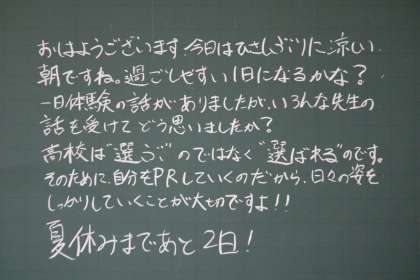 おはようございます。今日はひさしぶりに涼しい
朝ですね。過ごしやすい1日になるかな？
一日体験の話がありましたが、いろんな先生の
話を受けて どう思いましたか？
高校は"選ぶ"のではなく"選ばれる"のです。
そのために、自分をPRしていくのだから、日々の姿を
しっかりしていくことが大切ですよ！！
夏休みまであと2日！